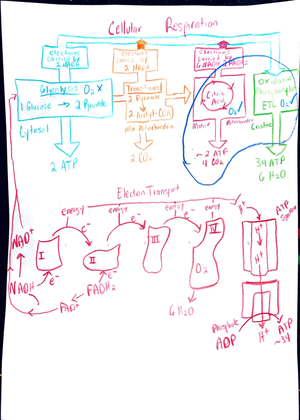 Cellular Respiration
electrons
carried by
2 NADH
electrons
carried by
2 NADH
electrons
carried by
6 NADH FADH2
Glycolysis O2 x
1 Glucose → 2 Pyruvate
Cytosol
2 ATP
Transition
2 Pyruvate
2 Acetyl-CoA
Mitochondria
2 CO2
Citric
Acid
O2✓
Matrix Mitochondria
~2 ATP
4 CO2
Oxidative
Phosphorylation
ETC O2✓
Cristae
34 ATP
6 H2O
Electron Transport
energy
energy
energy
energy
e-
e-
e-
H+
ATP
Synthase
I
II
III
IV
O2
6 H2O
H+
H+
NAD+
NADH
e-
e-
FADH2
FAD+
Phosphate
ADP
H+
ATP
~34